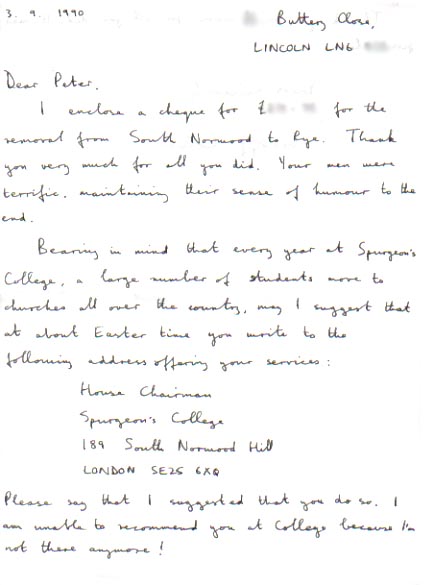 3. 9. 1990
Buttery Close,
LINCOLN LN6
Dear Peter,
I enclose a cheque for £ for the
removal from South Norwood to Rye. Thank
you very much for all you did. Your men were
terrific, maintaining their sense of humour to the
end.
Bearing in mind that every year at Spurgeon's
College, a large number of students move to
churches all over the country, may I suggest that
at about Easter time you write to the
following address offering your services:
House Chairman
Spurgeon's College
189 South Norwood Hill
LONDON SE25 6XQ
Please say that I suggested that you do so. I
am unable to recommend you at College because I'm
not there anymore!